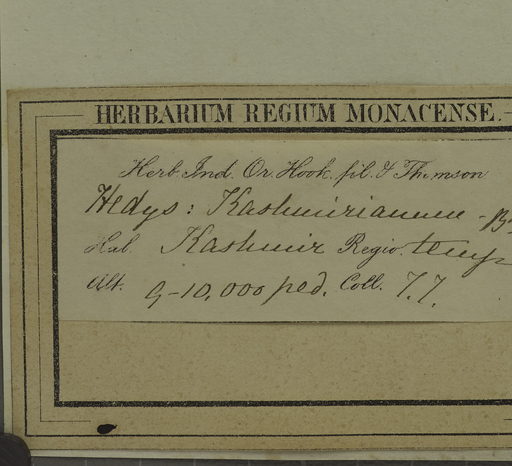 HERBARIUM REGIUM MONACENSE.
Herb. Ind. Or. Hook. fil. & Thomson
Hedys: Kashmirianum - B
Hab. Kashmir Regio. temp
Alt. 9-10,000 ped. Coll. T.T.